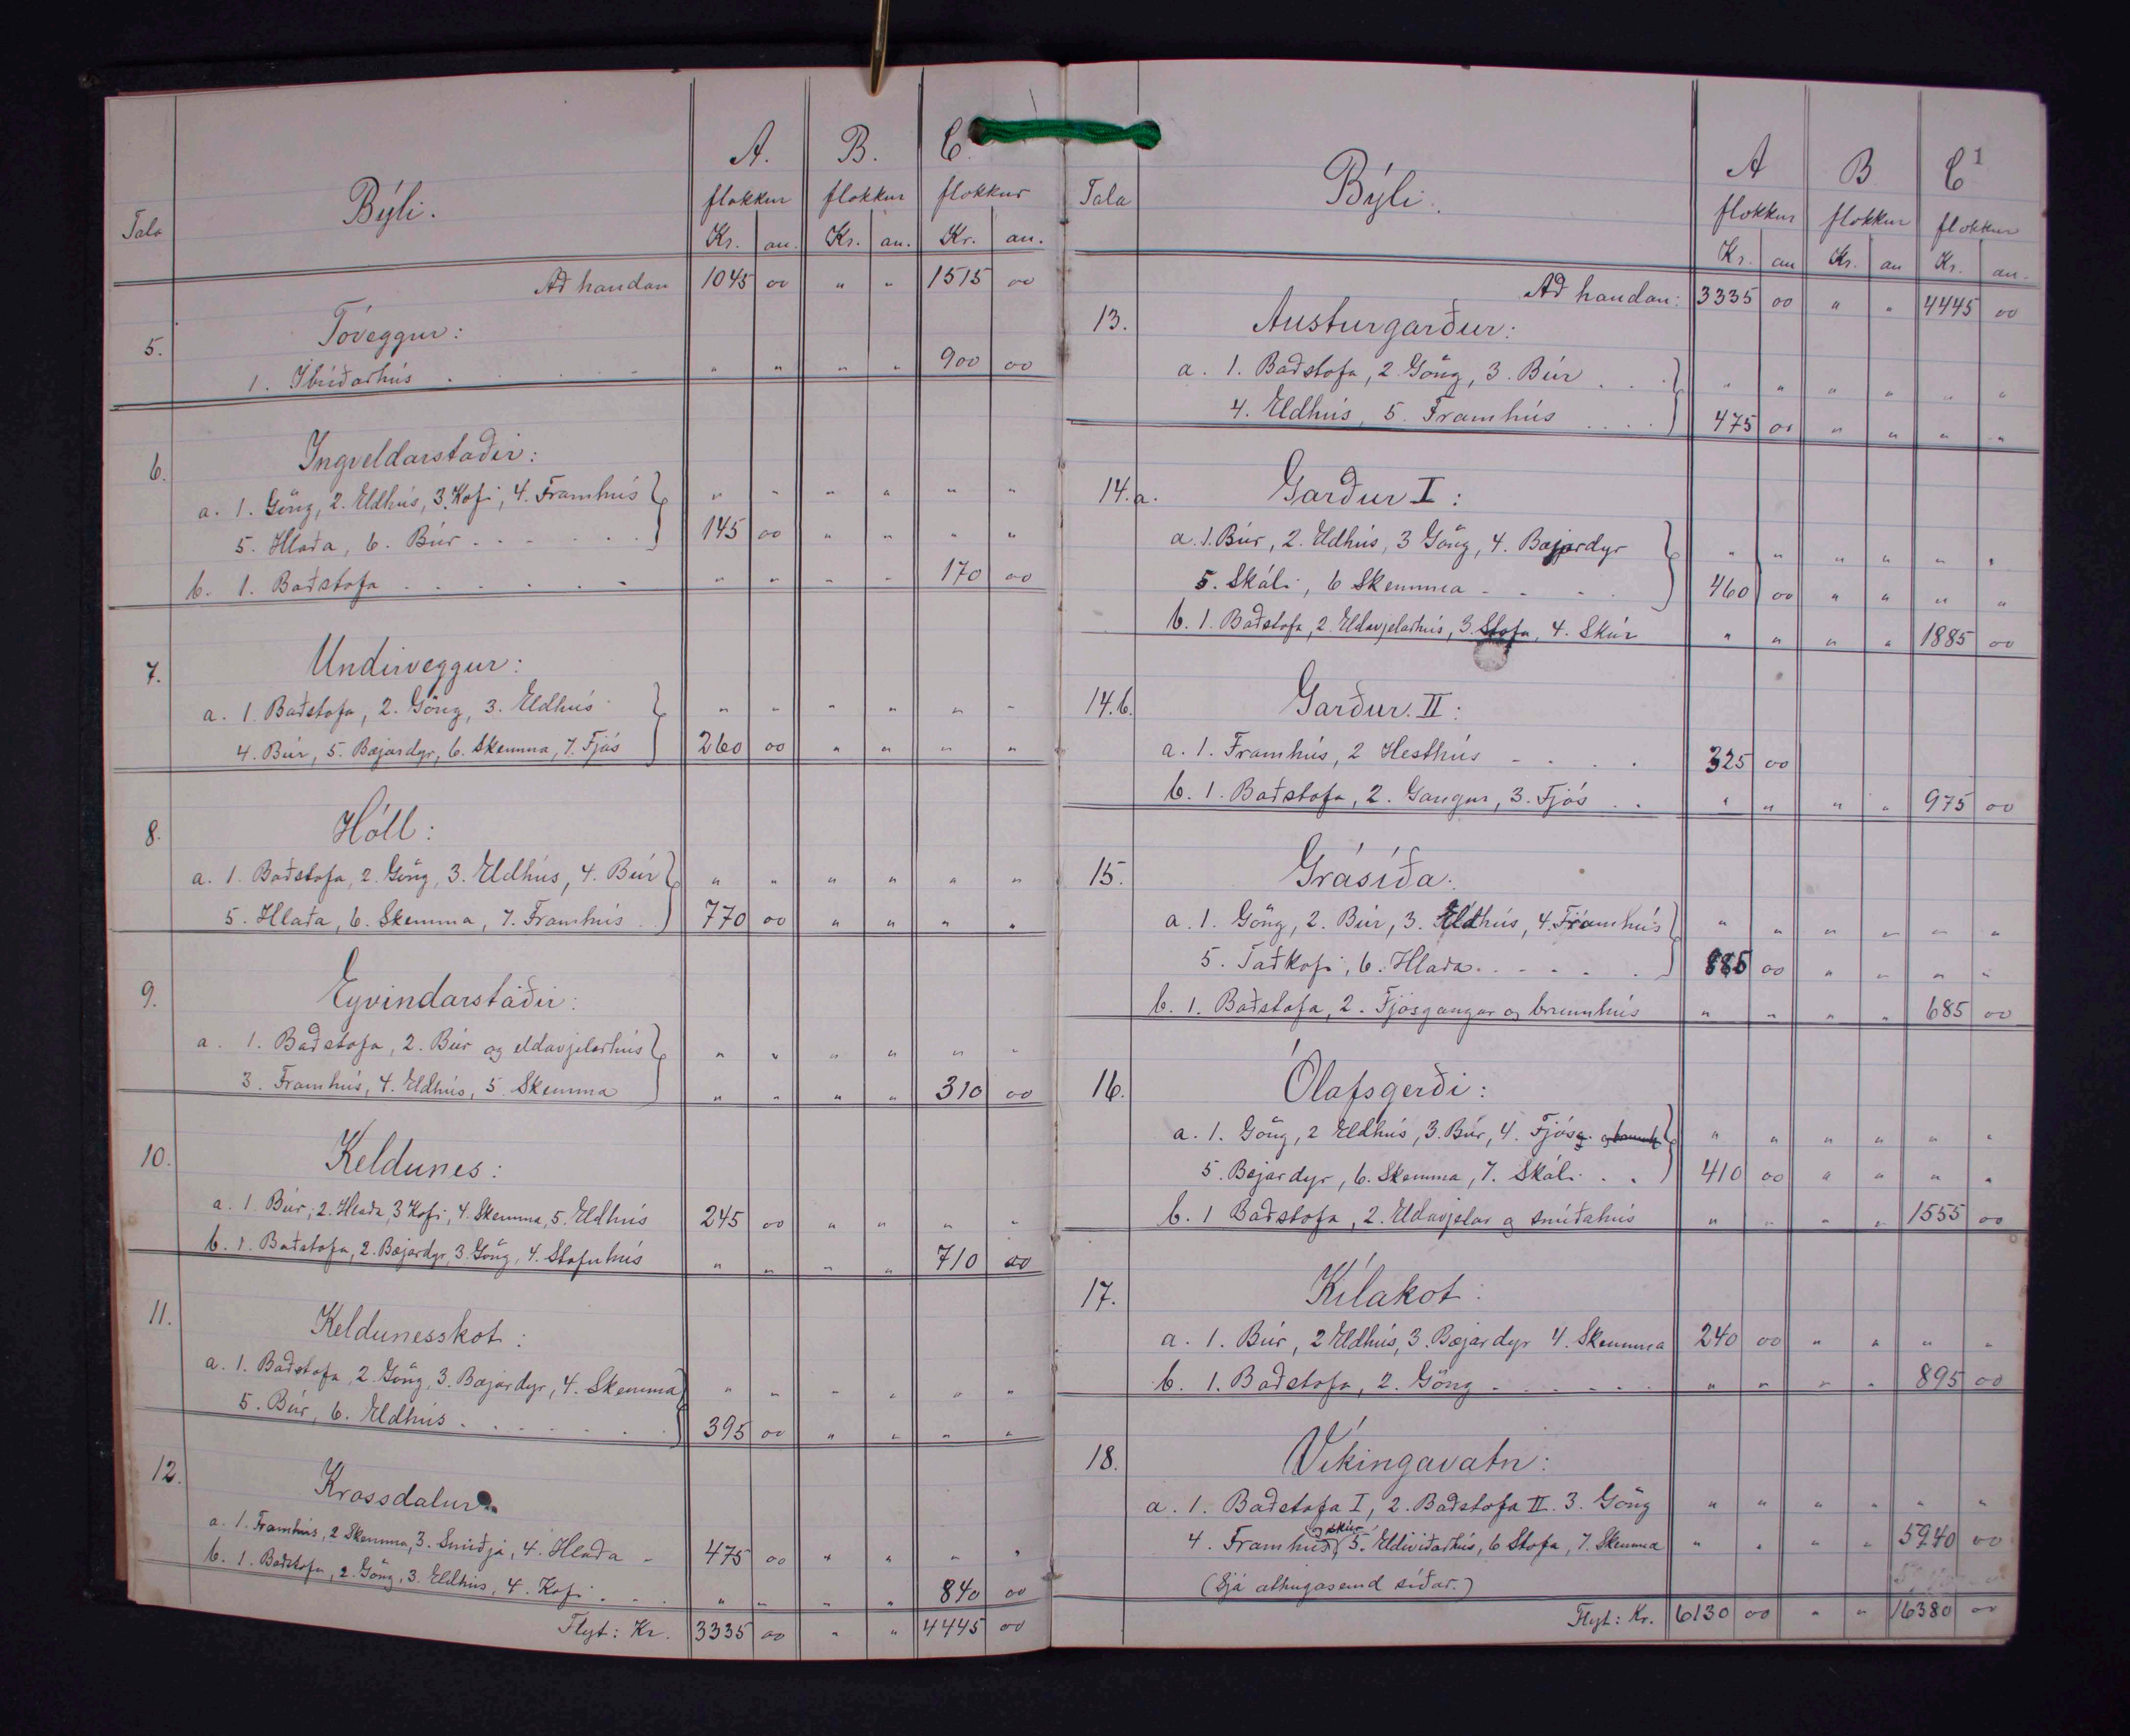 Tala Býli. A. flokkur Kr. au. B. flokkur Kr. au. C. flokkur Kr. au.
Að handan 1045 00 " " 1515 00
5. Tóveggur:
1. Íbúðarhús . . . . . " " " " 900 00
6. Ingveldarstaðir:
a. 1. Göng, 2. Eldhús, 3. Kofi, 4. Framhús " " " " " "
5. Hlaða, 6. Búr . . . . . . 145 00 " " " "
b. 1. Baðstofa . . . . . . " " " " 170 00
7. Undirveggur:
a. 1. Baðstofa, 2. Göng, 3. Eldhús " " " " " "
4. Búr, 5. Bæjardyr, 6. Skemma, 7. Fjós 260 00 " " " "
8. Hóll:
a. 1. Baðstofa, 2. Göng, 3. Eldhús, 4. Búr " " " " " "
5. Hlaða, 6. Skemma, 7. Framhús . . 770 00 " " " "
9. Eyvindarstaðir:
a. 1. Baðstofa, 2. Búr og eldavjelarhús " " " " " "
3. Framhús, 4. Eldhús, 5. Skemma " " " " 310 00
10. Keldunes:
a. 1. Búr, 2. Hlaða, 3 Kofi, 4. Skemma, 5. Eldhús 245 00 " " " "
b. 1. Baðstofa, 2. Bæjardyr, 3. Göng, 4. Stofuhús " " " " 710 00
11. Keldunesskot:
a. 1. Baðstofa, 2. Göng, 3. Bæjardyr, 4. Skemma " " " " " "
5. Búr, 6. Eldhús . . . . . . 395 00 " " " "
12. Krossdalur
a. 1. Framhús, 2 Skemma, 3. Smiðja, 4. Hlaða - 475 00 " " " "
b. 1. Baðstofa, 2. Göng, 3. Eldhús, 4. Kofi . . . " " " " 840 00
Flyt: Kr. 3335 00 " " 4445 00
Tala Býli. A flokkur Kr. au B flokkur Kr. au C flokkur Kr. au. 1
Að handan: 3335 00 " " 4445 00
13. Austurgarður:
a. 1. Baðstofa, 2 Göng, 3. Búr . . . " " " " " "
4. Eldhús, 5. Framhús . . . . 475 00 " " " "
14. a. Garður I:
a. 1. Búr, 2. Eldhús, 3 Göng, 4. Bæjardyr " " " " " "
5. Skáli, 6 Skemma - - . . 460 00 " " " "
b. 1. Baðstofa, 2. Eldavjelarhús, 3. Stofa, 4. Skúr " " " " 1885 00
14. b. Garður II:
a. 1. Framhús, 2 Hesthús - . . . 325 00
b. 1. Baðstofa, 2. Gangur, 3. Fjós . . " " " " 975 00
15. Grásíða:
a. 1. Göng, 2. Búr, 3. Eldhús, 4. Framhús " " " " " "
5. Taðkofi, 6. Hlaða . . . . . 885 00 " " " "
b. 1. Baðstofa, 2. Fjósgangur og brunnhús " " " " 685 00
16. Ólafsgerði:
a. 1. Göng, 2 Eldhús, 3. Búr, 4. Fjósg. " " " " " "
5. Bæjardyr, 6. Skemma, 7. Skáli . . 410 00 " " " "
b. 1 Baðstofa, 2. Eldavjelar og smíðahús " " " " 1555 00
17. Kílakot:
a. 1. Búr, 2 Eldhús, 3. Bæjardyr 4. Skemma 240 00 " " " "
b. 1. Baðstofa, 2. Göng . . . . . " " " " 895 00
18. Víkingavatn:
a. 1. Baðstofa I, 2. Baðstofa II. 3. Göng " " " " " "
og skúr
4. Framhús, 5. Eldiviðarhús, 6 Stofa, 7. Skemma " " " " 5940 00
(Sjá athugasemd síðar.)
Flyt: Kr. 6130 00 " " 16380 00